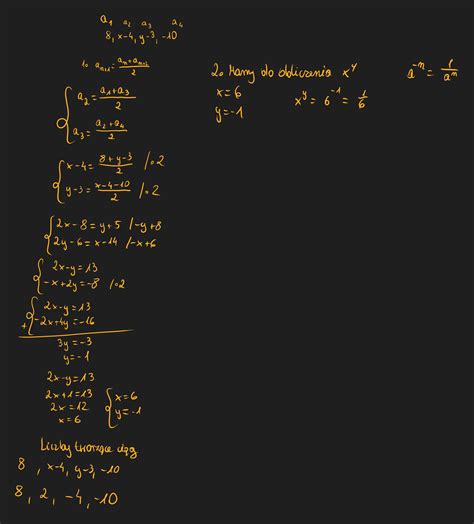 a₁ a₂ a₃ a₄
8, x-4, y-3, -10
1. aₙ₊₁ = (aₙ + aₙ₊₂)/2
{ a₂ = (a₁ + a₃)/2
a₃ = (a₂ + a₄)/2
{ x-4 = (8 + y-3)/2 /·2
y-3 = (x-4-10)/2 /·2
{ 2x-8 = y+5 /-y+8
2y-6 = x-14 /-x+6
{ 2x-y = 13
-x+2y = -8 /·2
+ { 2x-y = 13
-2x+4y = -16
3y = -3
y = -1
2x-y = 13
2x+1 = 13
2x = 12
x = 6
{ x = 6
y = -1
Liczby tworzące ciąg
8, x-4, y-3, -10
8, 2, -4, -10
2. Mamy do obliczenia xʸ
x = 6
y = -1
xʸ = 6⁻¹ = 1/6
a⁻ⁿ = 1/aⁿ